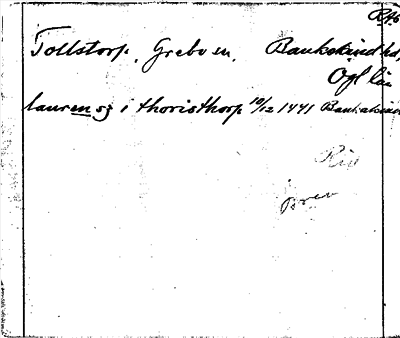 RAS
Tollstorp, Grebo sn, Bankekind hd,
Ögl län
laurens i thoristhorp 10/12 1441 Bankekind
Brev